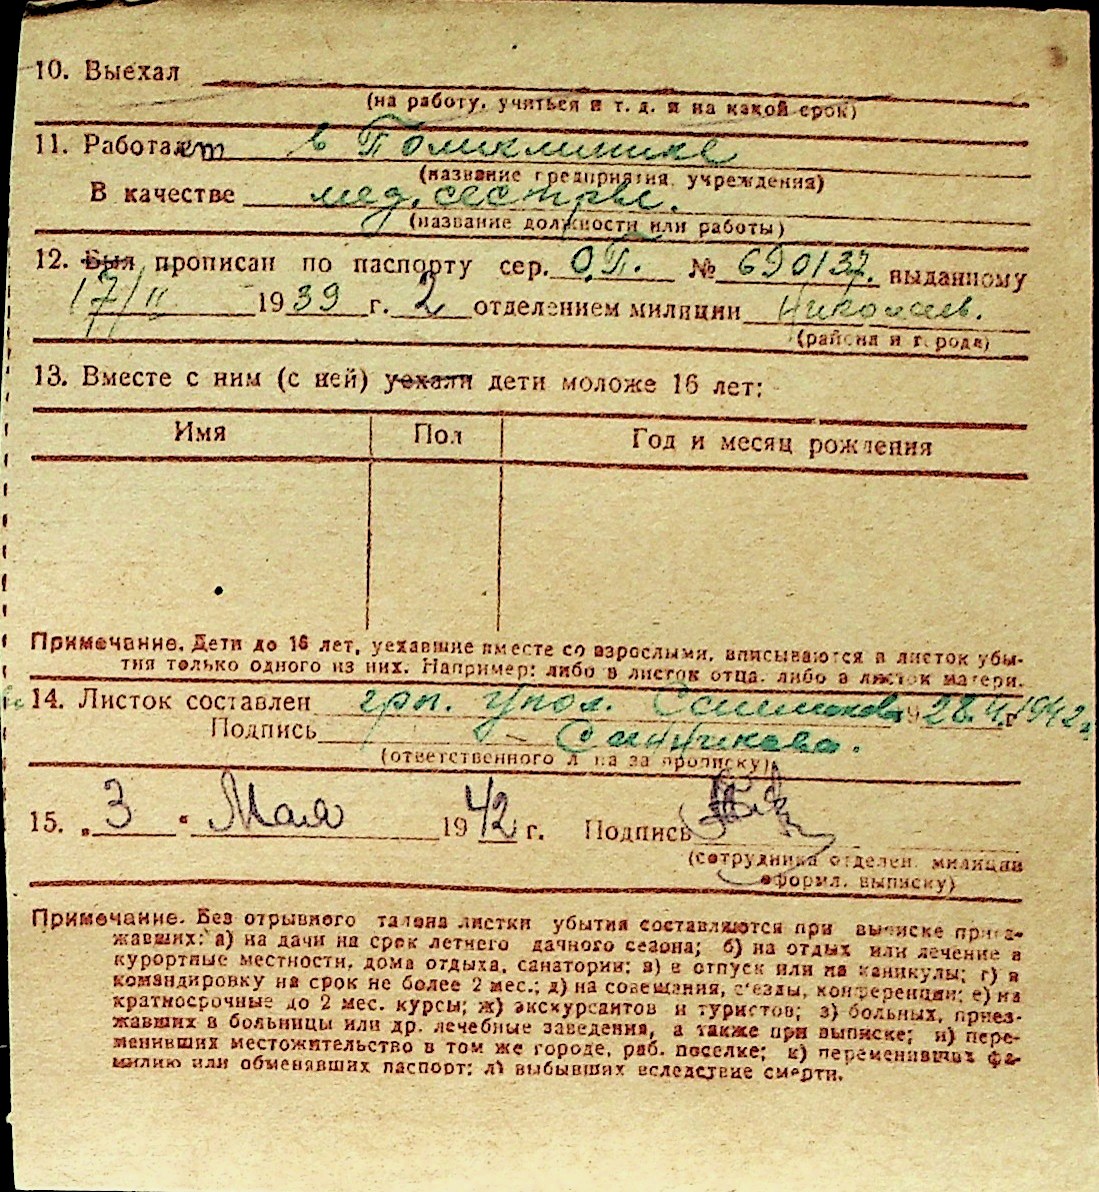 10. Выехал
(на работу, учиться и т. д. и на какой срок)
11. Работает в Поликлинике
(название предприятия, учреждения)
В качестве мед. сестры.
(название должности или работы)
12. Был прописан по паспорту сер. О.П. № 690137. выданному
17/II 1939 г. 2 отделением милиции Николаев.
(района и города)
13. Вместе с ним (с ней) уехали дети моложе 16 лет:
Имя Пол Год и месяц рождения
Примечание. Дети до 16 лет, уехавшие вместе со взрослыми, вписываются в листок убы-
тия только одного из них. Например: либо в листок отца, либо в листок матери.
14. Листок составлен упол. 28.4.1942 г.
Подпись
(ответственного лица за прописку)
15. „3" Мая 1942 г. Подпись
(сотрудника отделен. милиции
оформл. выписку)
Примечание. Без отрывного талона листки убытия составляются при выписке приез-
жавших: а) на дачи на срок летнего дачного сезона; б) на отдых или лечение в
курортные местности, дома отдыха, санатории; в) в отпуск или на каникулы; г) в
командировку на срок не более 2 мес.; д) на совещания, съезды, конференции; е) на
краткосрочные до 2 мес. курсы; ж) экскурсантов и туристов; з) больных, приез-
жавших в больницы или др. лечебные заведения, а также при выписке; и) пере-
менивших местожительство в том же городе, раб. поселке; к) переменивших фа-
милию или обменявших паспорт; л) выбывших вследствие смерти.